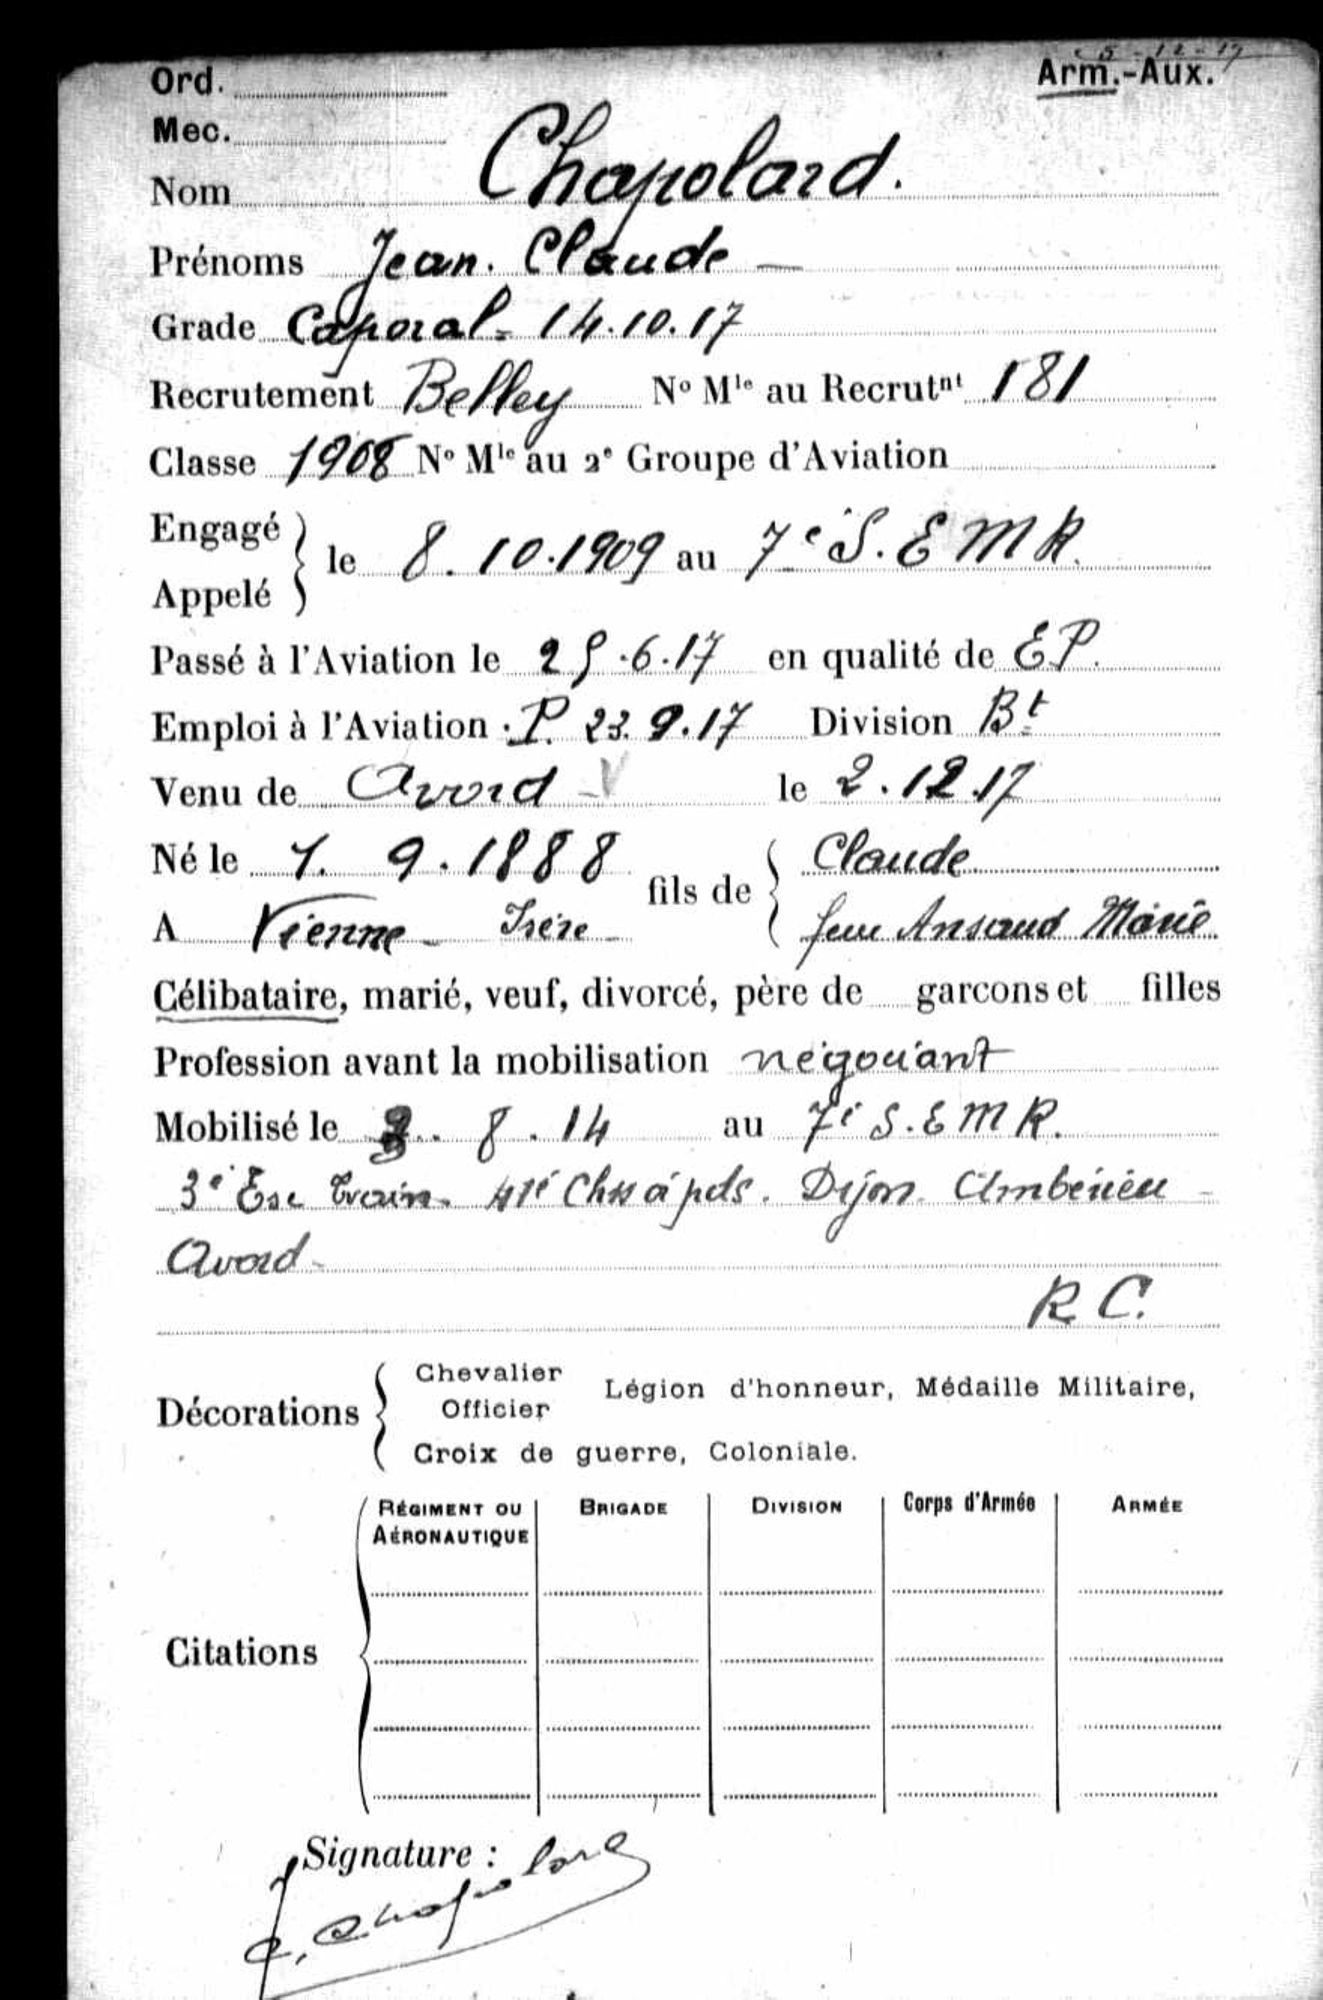 5-12-17
Ord.
Arm.-Aux.
Mec.
Nom Chapolard.
Prénoms Jean. Claude —
Grade Caporal - 14.10.17
Recrutement Belley No Mle au Recrutnt 181
Classe 1908 No Mle au 2e Groupe d'Aviation
Engagé
Appelé } le 8.10.1909 au 7e S.E M R.
Passé à l'Aviation le 25.6.17 en qualité de E P.
Emploi à l'Aviation . P. 23.9.17 Division Bt
Venu de Avord - V le 2.12.17
Né le 7. 9.1888 fils de { Claude
A Vienne - Isère - Marie
Célibataire, marié, veuf, divorcé, père de garcons et filles
Profession avant la mobilisation négociant
Mobilisé le 3. 8.14 au 7e S.E M R.
3e Esc train. à pds. Dijon. Ambérieu -
Avord -
R C.
Décorations { Chevalier
Officier Légion d'honneur, Médaille Militaire,
Croix de guerre, Coloniale.
Citations { RÉGIMENT OU AÉRONAUTIQUE | BRIGADE | DIVISION | Corps d'Armée | ARMÉE
Signature :
J. C. Chapolard